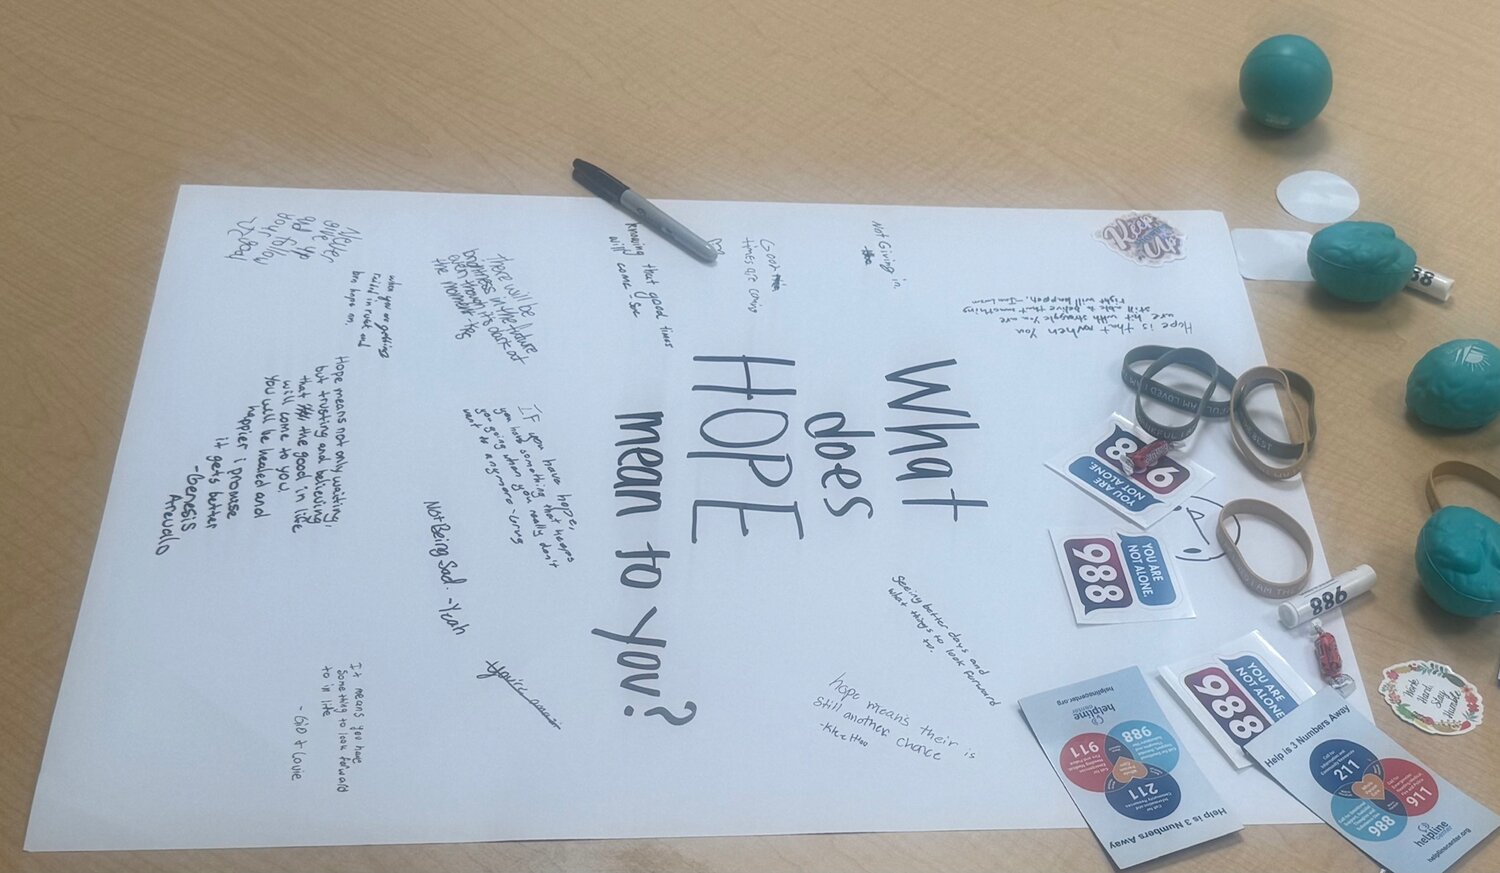 What
does
HOPE
mean to you?
Not Giving in
Good
times are coming
knowing that good times
will come - see
There will be
brightness in the future,
even though it's dark at
the moment
Never
give
up
your
when you are getting
hope on.
Hope means not only waiting,
but trusting and believing
that the good in life
will come to you.
You will be healed and
happier i promise
it gets better
- Genesis
Arevalo
If you have hope,
you have something that keeps
you going when you really don't
want to anymore
Not Being Sad. - Yeah
you're
It means you have
something to look forward
to in life
- Gio + Louie
seeing better days and
what things to look forward
to.
hope means their is
still another chance
Hope is that when you
still able to believe that something
right will happen.
Keep
Up
I AM LOVED I AM
988
YOU ARE
NOT ALONE.
988
YOU ARE
NOT ALONE.
988
YOU ARE
NOT ALONE.
986
88
helplinecenter.org
helpline
center
988
911
211
Help is 3 Numbers Away
Help is 3 Numbers Away
211
911
988
helpline
center
helplinecenter.org
Work
Hard,
Stay
Humble